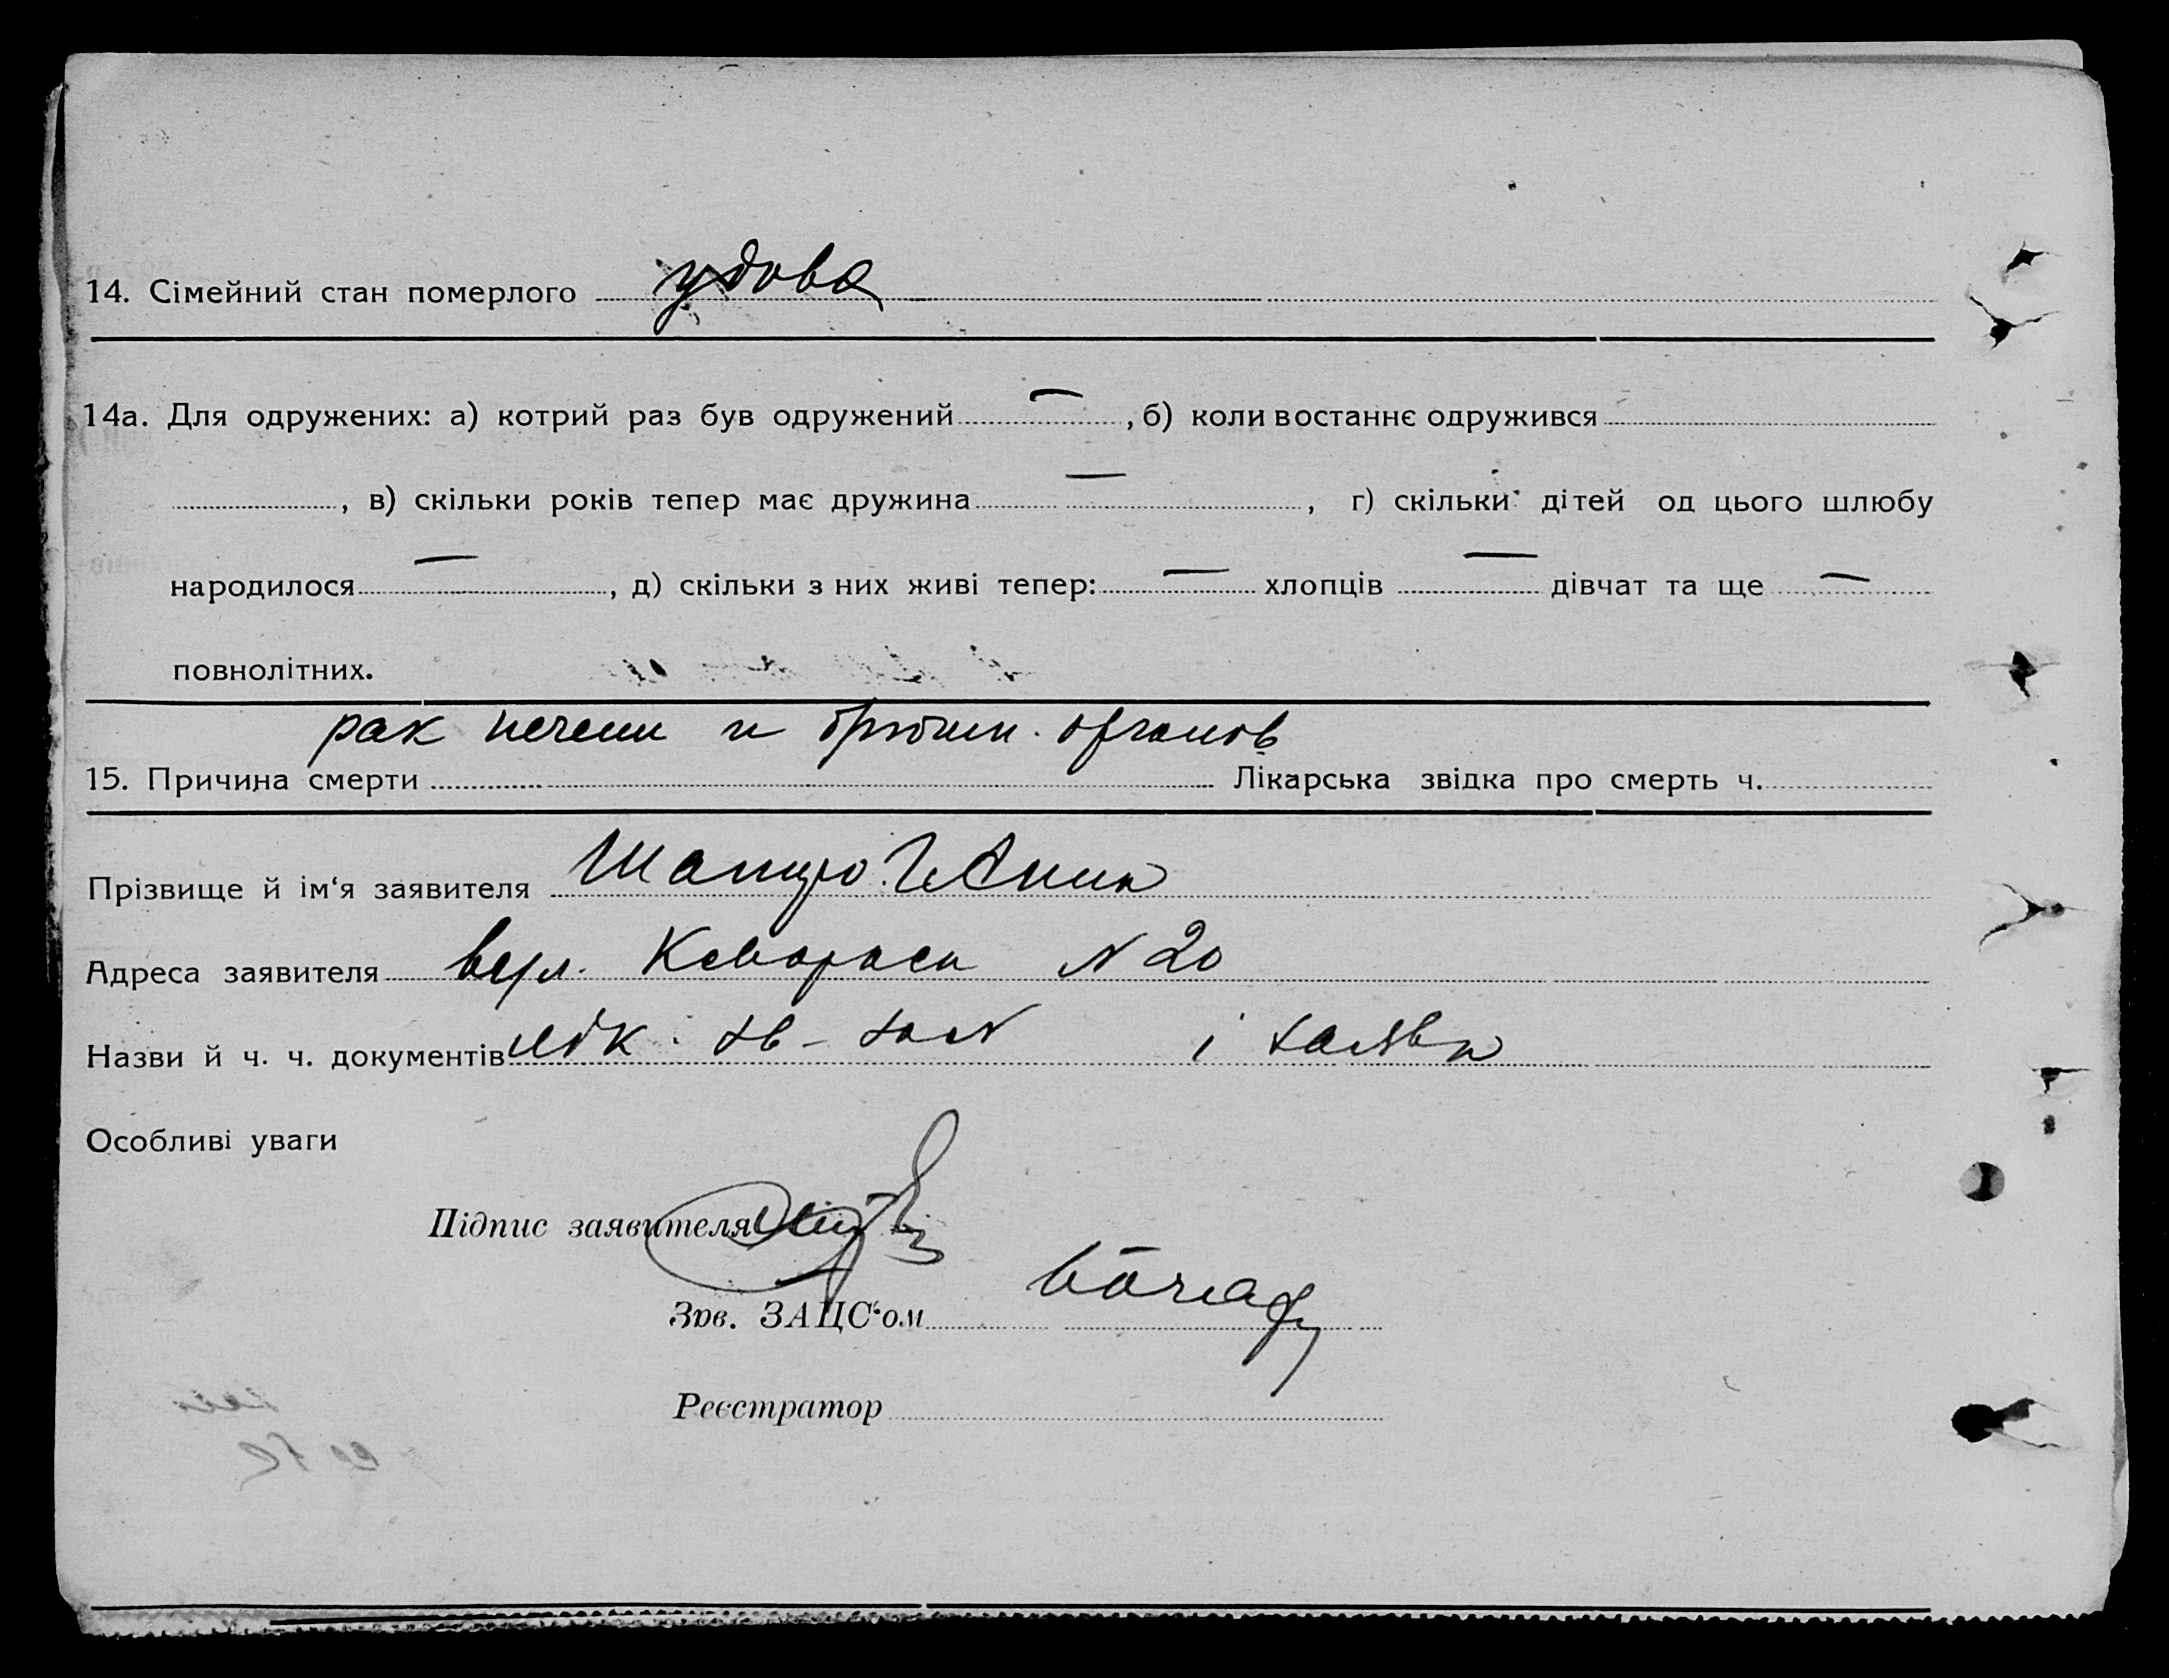 14. Сімейний стан померлого удова
14а. Для одружених: а) котрий раз був одружений —, б) коли востаннє одружився
, в) скільки років тепер має дружина —, г) скільки дітей од цього шлюбу
народилося —, д) скільки з них живі тепер: — хлопців — дівчат та ще —
повнолітних.
рак печени и брюшн. органов
15. Причина смерти Лікарська звідка про смерть ч.
Прізвище й ім‘я заявителя Шапиро
Адреса заявителя вул. N 20
Назви й ч. ч. документів лік. зв- і заява
Особливі уваги
Підпис заявителя
Зав. ЗАЦС‘ом
Реєстратор